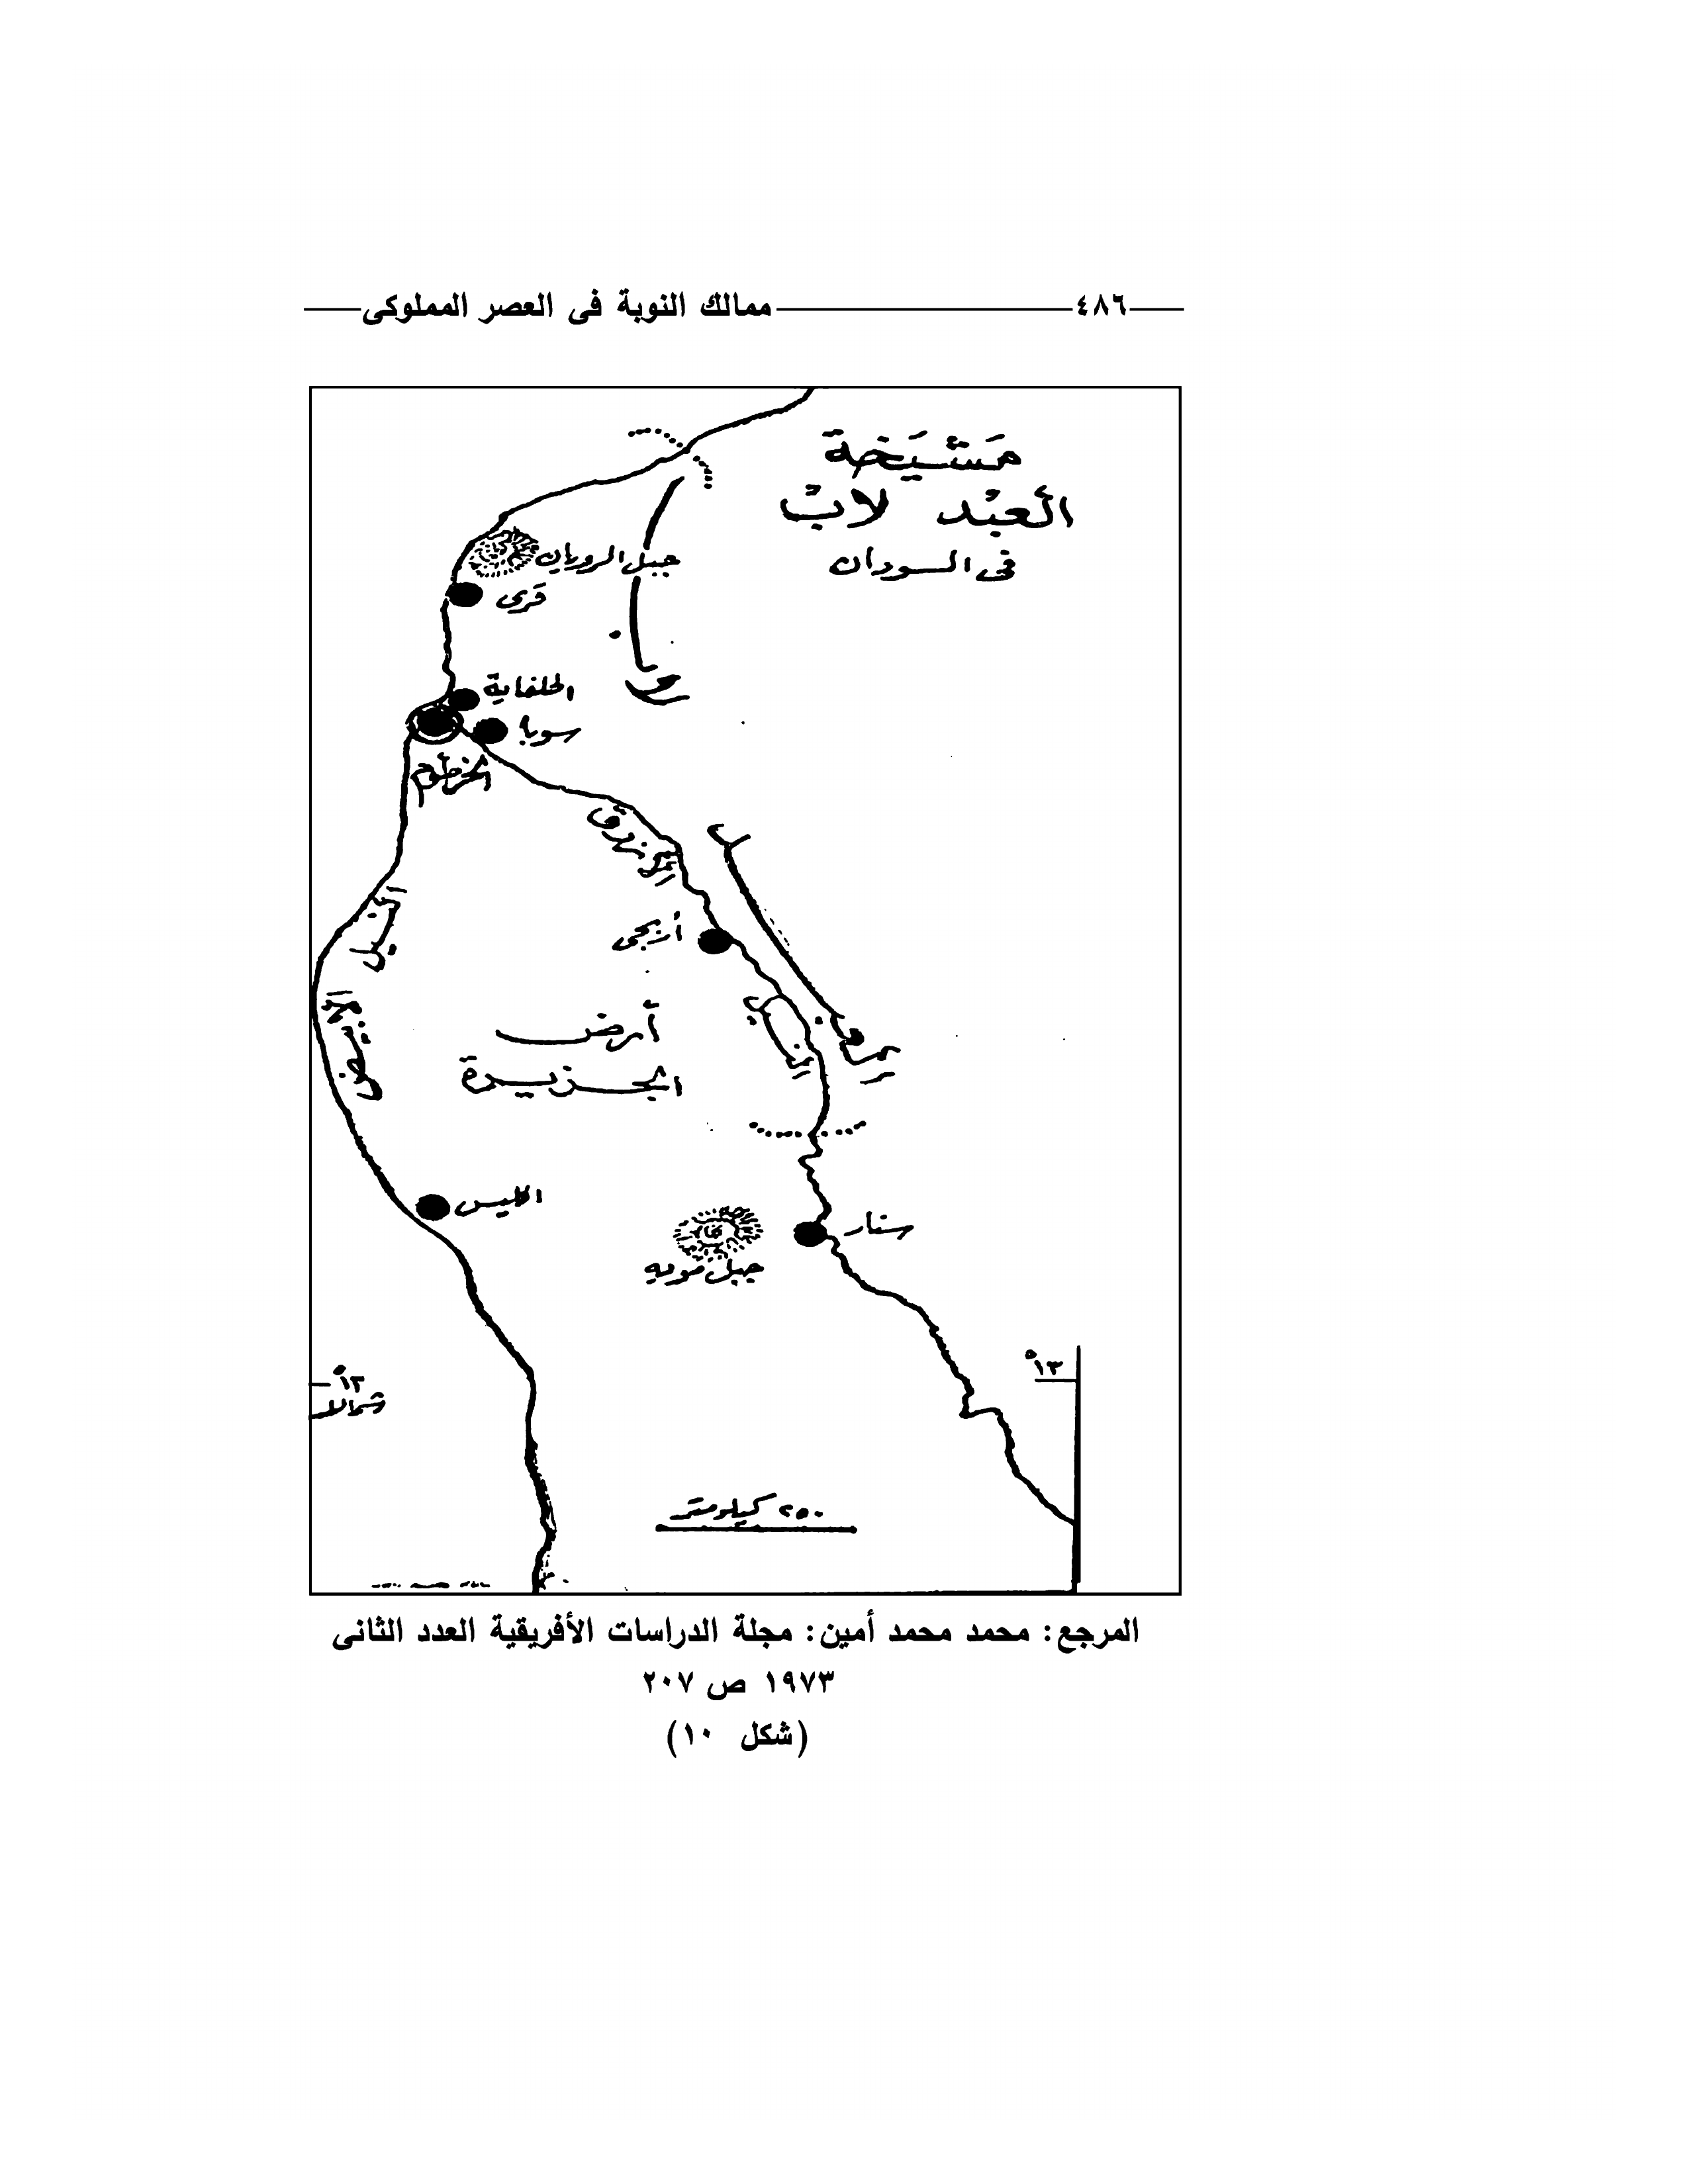 ٤٨٦ ممالك النوبة فى العصر المملوكى
مَشيَخة
العبْد لابْ
فى السودان
جبل الرويان
قرى
الحلفاية
سوبا
الخرطوم
أربجى
النيل
الأبيض
أرض
الجزيرة
اليس
سنار
جبل مويه
١٣°
١٣°
شمالا
٢٥٠ كيلومتر
المرجع: محمد محمد أمين: مجلة الدراسات الأفريقية العدد الثانى
١٩٧٣ ص ٢٠٧
(شكل ١٠)